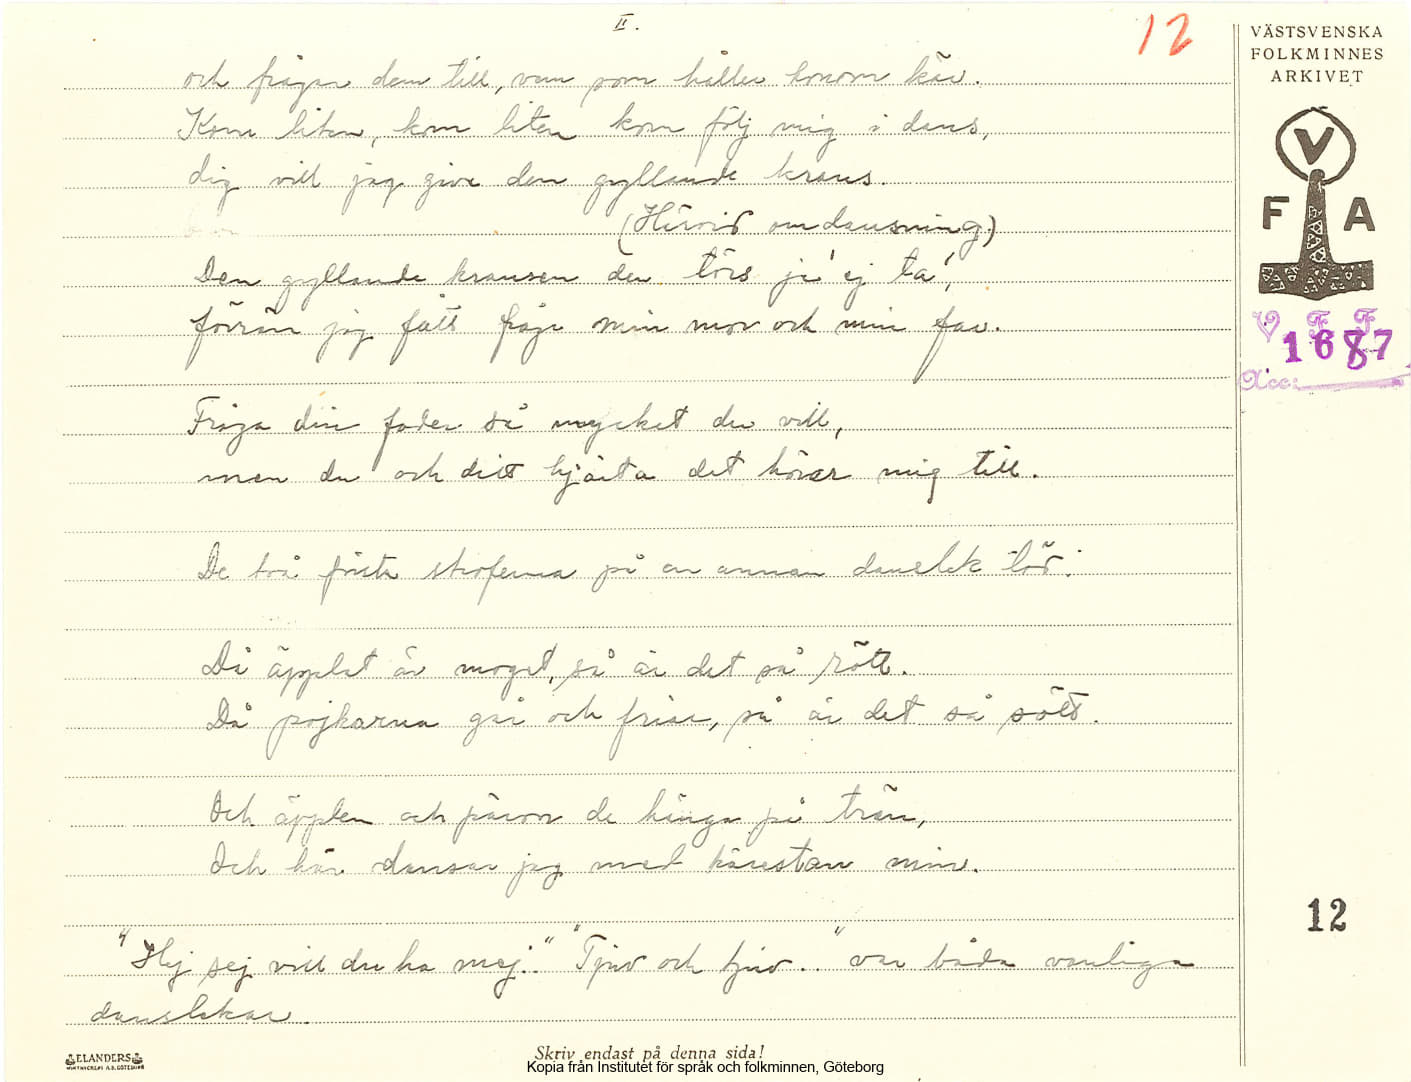 II.
12
VÄSTSVENSKA
FOLKMINNES
ARKIVET
V
F A
V F F
1687
Acc:
och frågar dem till, vem som håller honom kär.
Kom liten, kom liten kom följ mig i dans,
dig vill jag giva den gyllande krans.
(Härvid omdansning.)
Den gyllande kransen den törs ja' ej ta',
förrän jag fått fråga min mor och min far.
Fråga din fader så mycket du vill,
men du och ditt hjärta det hörer mig till.
De två första stroferna på en annan danslek löd:
Då äpplet är moget, så är det så rött.
Då pojkarna gå och friar, så är det så sött.
Och äpplen och päron de hänga på trän,
Och här dansar jag med kärestan min.
12
"Hej sej vill du ha mej.." "Tjuv och tjuv.." var båda vanliga
danslekar.
ELANDERS
BOKTRYCKERI A.B. GÖTEBORG
Skriv endast på denna sida!
Kopia från Institutet för språk och folkminnen, Göteborg